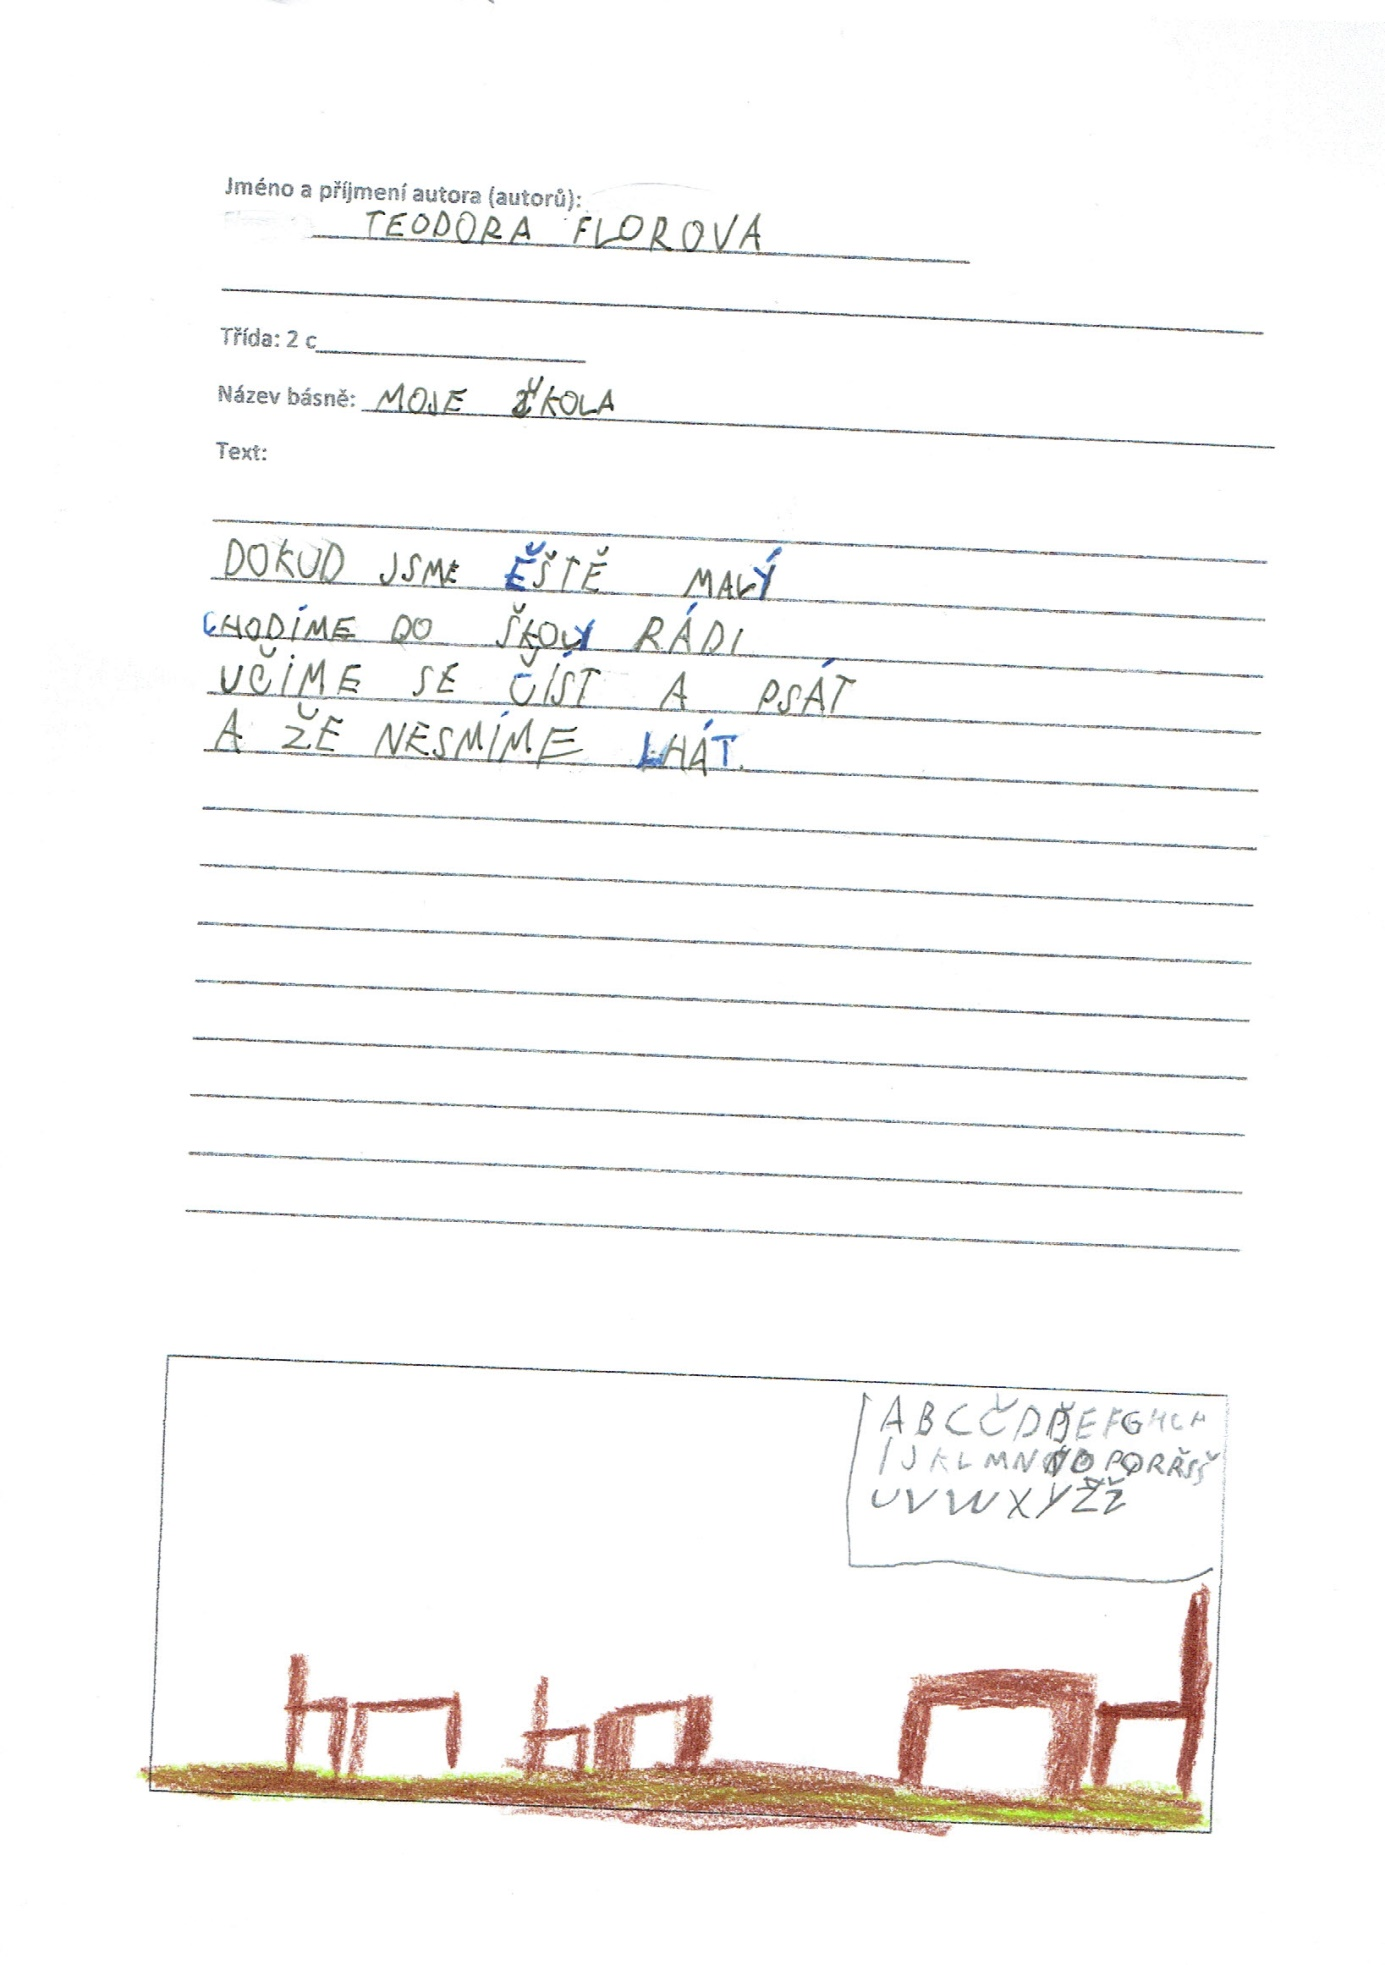 Jméno a příjmení autora (autorů):
TEODORA FLOROVA
Třída: 2 c
Název básně: MOJE ŠKOLA
Text:
DOKUD JSME ĚŠTĚ MALÝ
CHODÍME DO ŠKOLY RÁDI
UČÍME SE ČÍST A PSÁT
A ŽE NESMÍME LHÁT.
A B C Č D Ď E F G H CH
I J K L M N Ň O P Q R Ř S Š
U V W X Y Z Ž